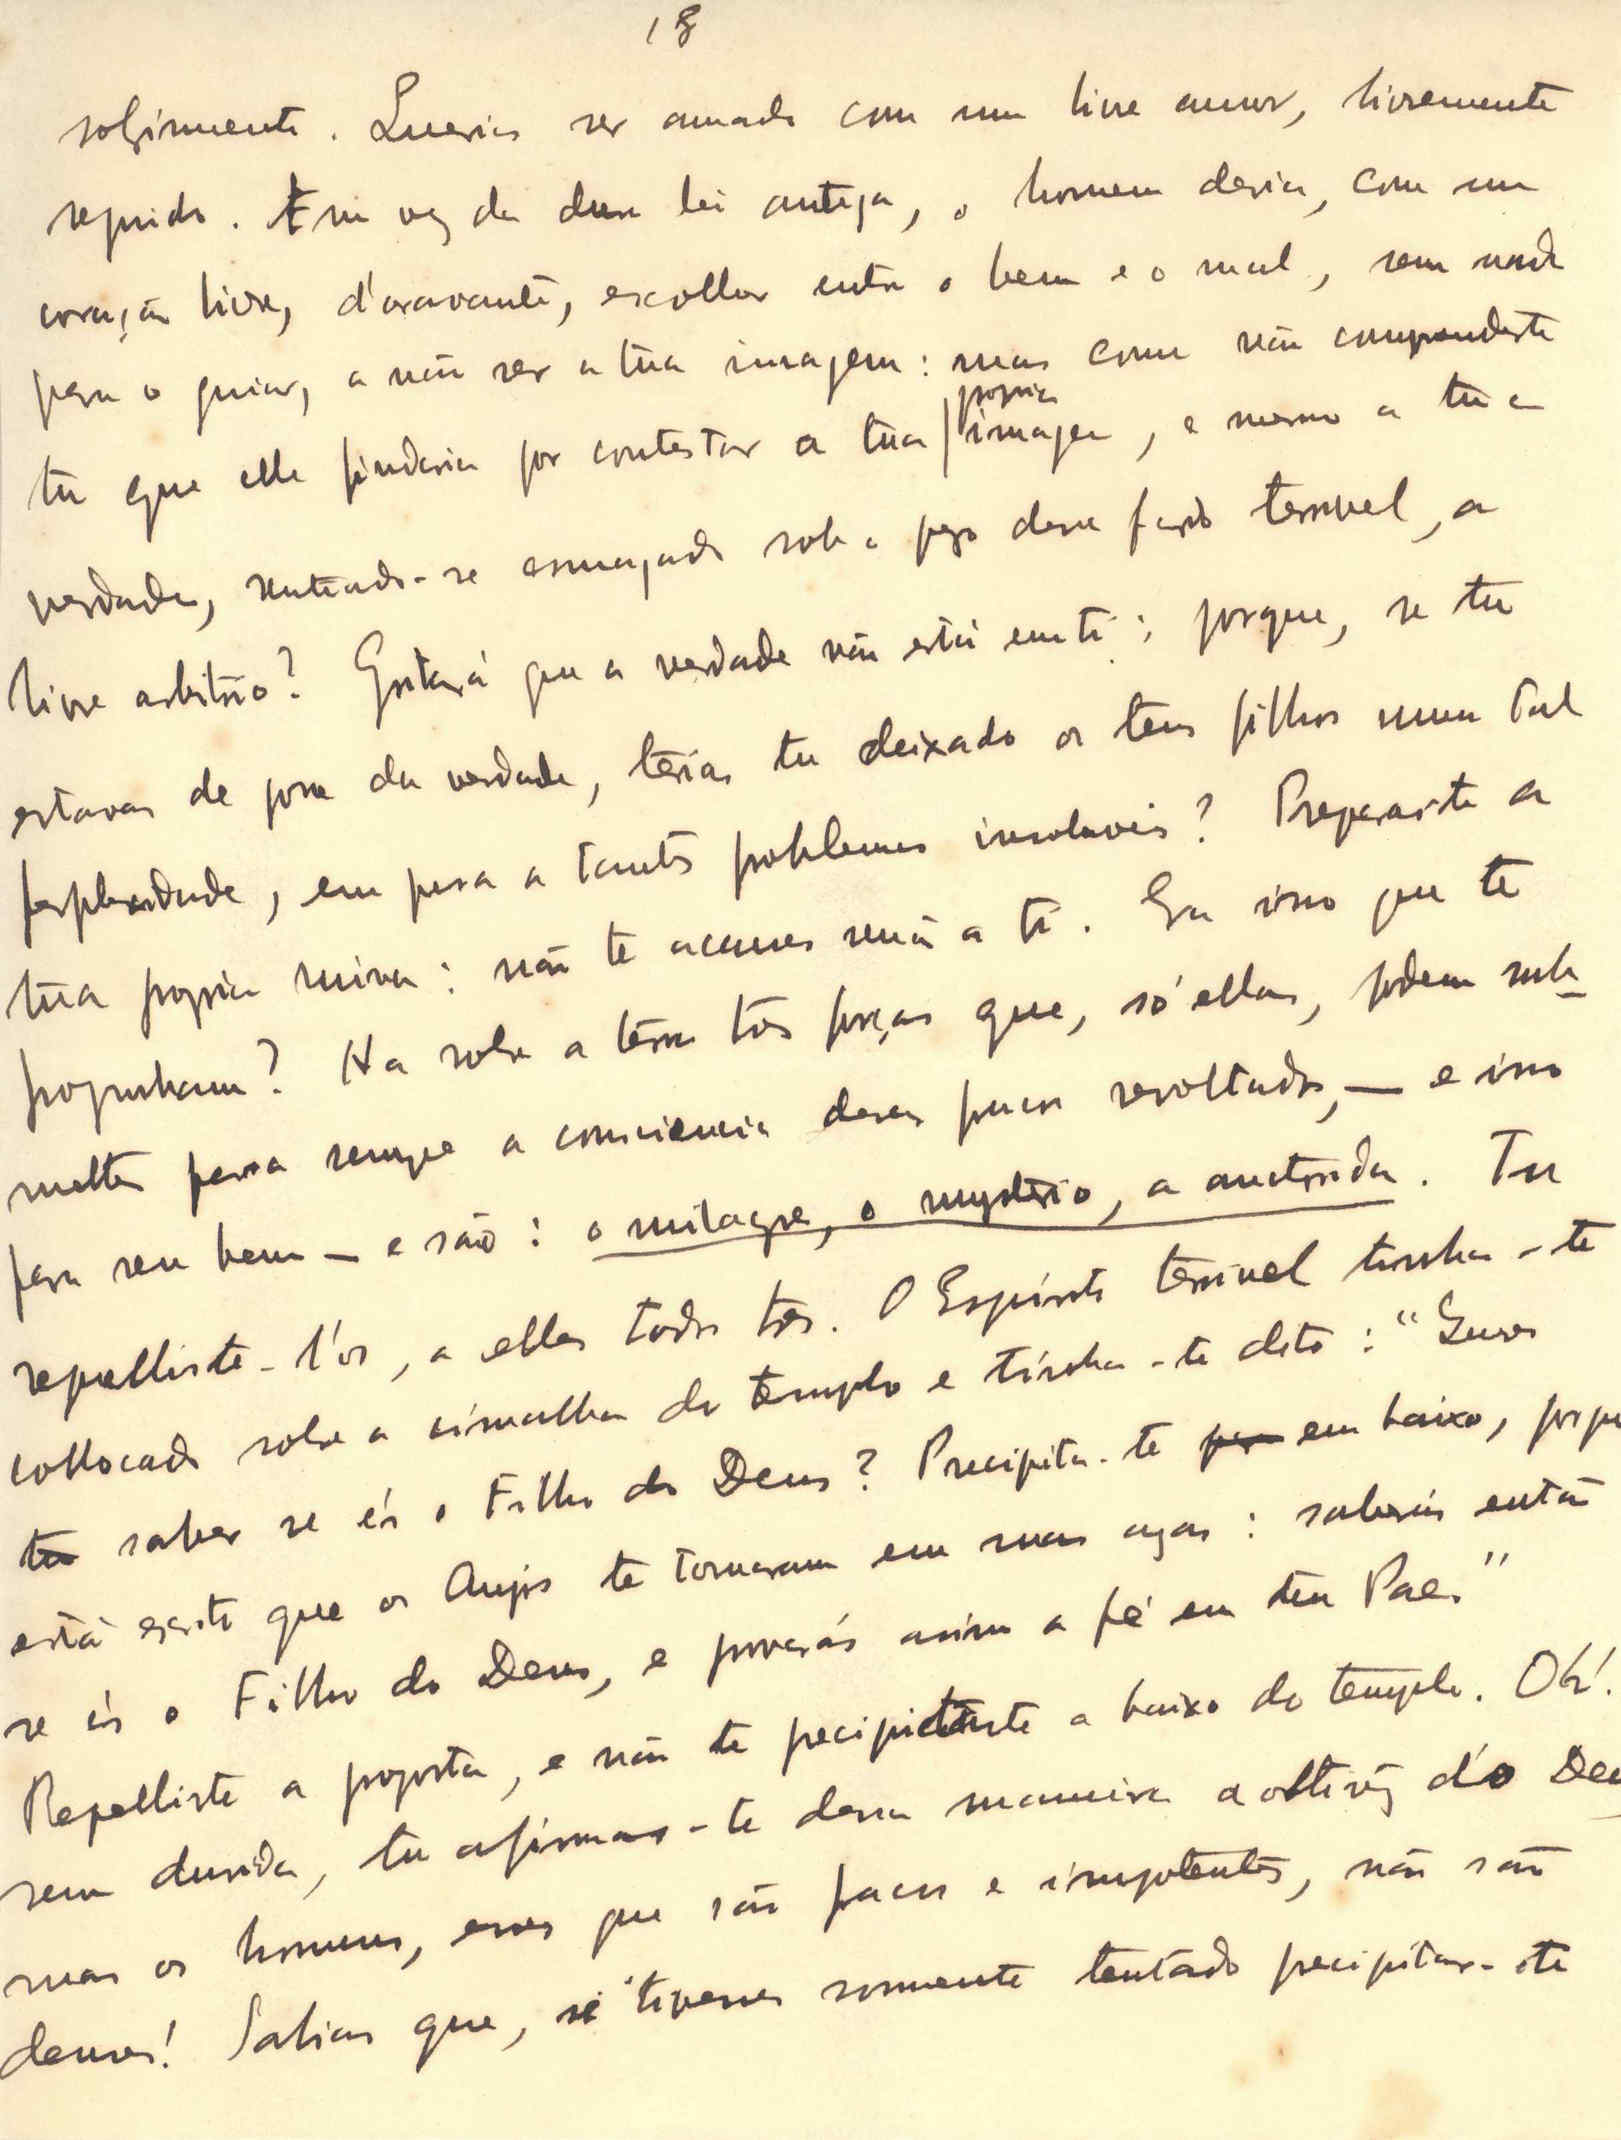 18
soffrimento. Querias ser amado com um livre amor, livremente
seguido. Em vez da dura lei antiga, o homem devia, com um
coração livre, d'oravante, escolher entre o bem e o mal, sem nada
para o guiar, a não ser a tua imagem: mas como não comprendeste
tu que elle findaria por contestar a tua propria imagem, e mesmo a tua
verdade, sentindo-se esmagado sob o peso desse fardo terrivel, o
livre arbitrio? Gritará que a verdade não está em ti; porque, se tu
estavas de posse da verdade, terias tu deixado os teus filhos numa tal
perplexidade, em presa a tantos problemas insoluveis? Preparaste a
tua propria ruina: não te accuses senão a ti. Era isso que te
propunham? Ha sobre a terra tres forças que, só ellas, podem sub-
metter para sempre a consciencia desses fracos revoltados, — e isso
para seu bem — e são: o milagre, o mysterio, a auctoridade. Tu
repelliste-l'os, a elles todos tres. O Espirito terrivel tinha-te
collocado sobre a cimalha do templo e tinha-te dito: "Queres
tu saber se és o Filho de Deus? Precipita-te em baixo, porque
está escrito que os Anjos te tomaram em suas azas: saberás então
se és o Filho de Deus, e provarás assim a fé em teu Pae."
Repelliste a proposta, e não te precipitaste a baixo do templo. Oh!
sem duvida, tu afirmas-te dessa maneira a altivez d'o Deus
mas os homens, esses que são fracos e impotentes, não são
deuses! Sabias que, se tivesses somente tentado precipitar-te